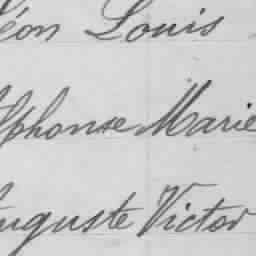 Léon Louis
Alphonse Marie
Auguste Victor